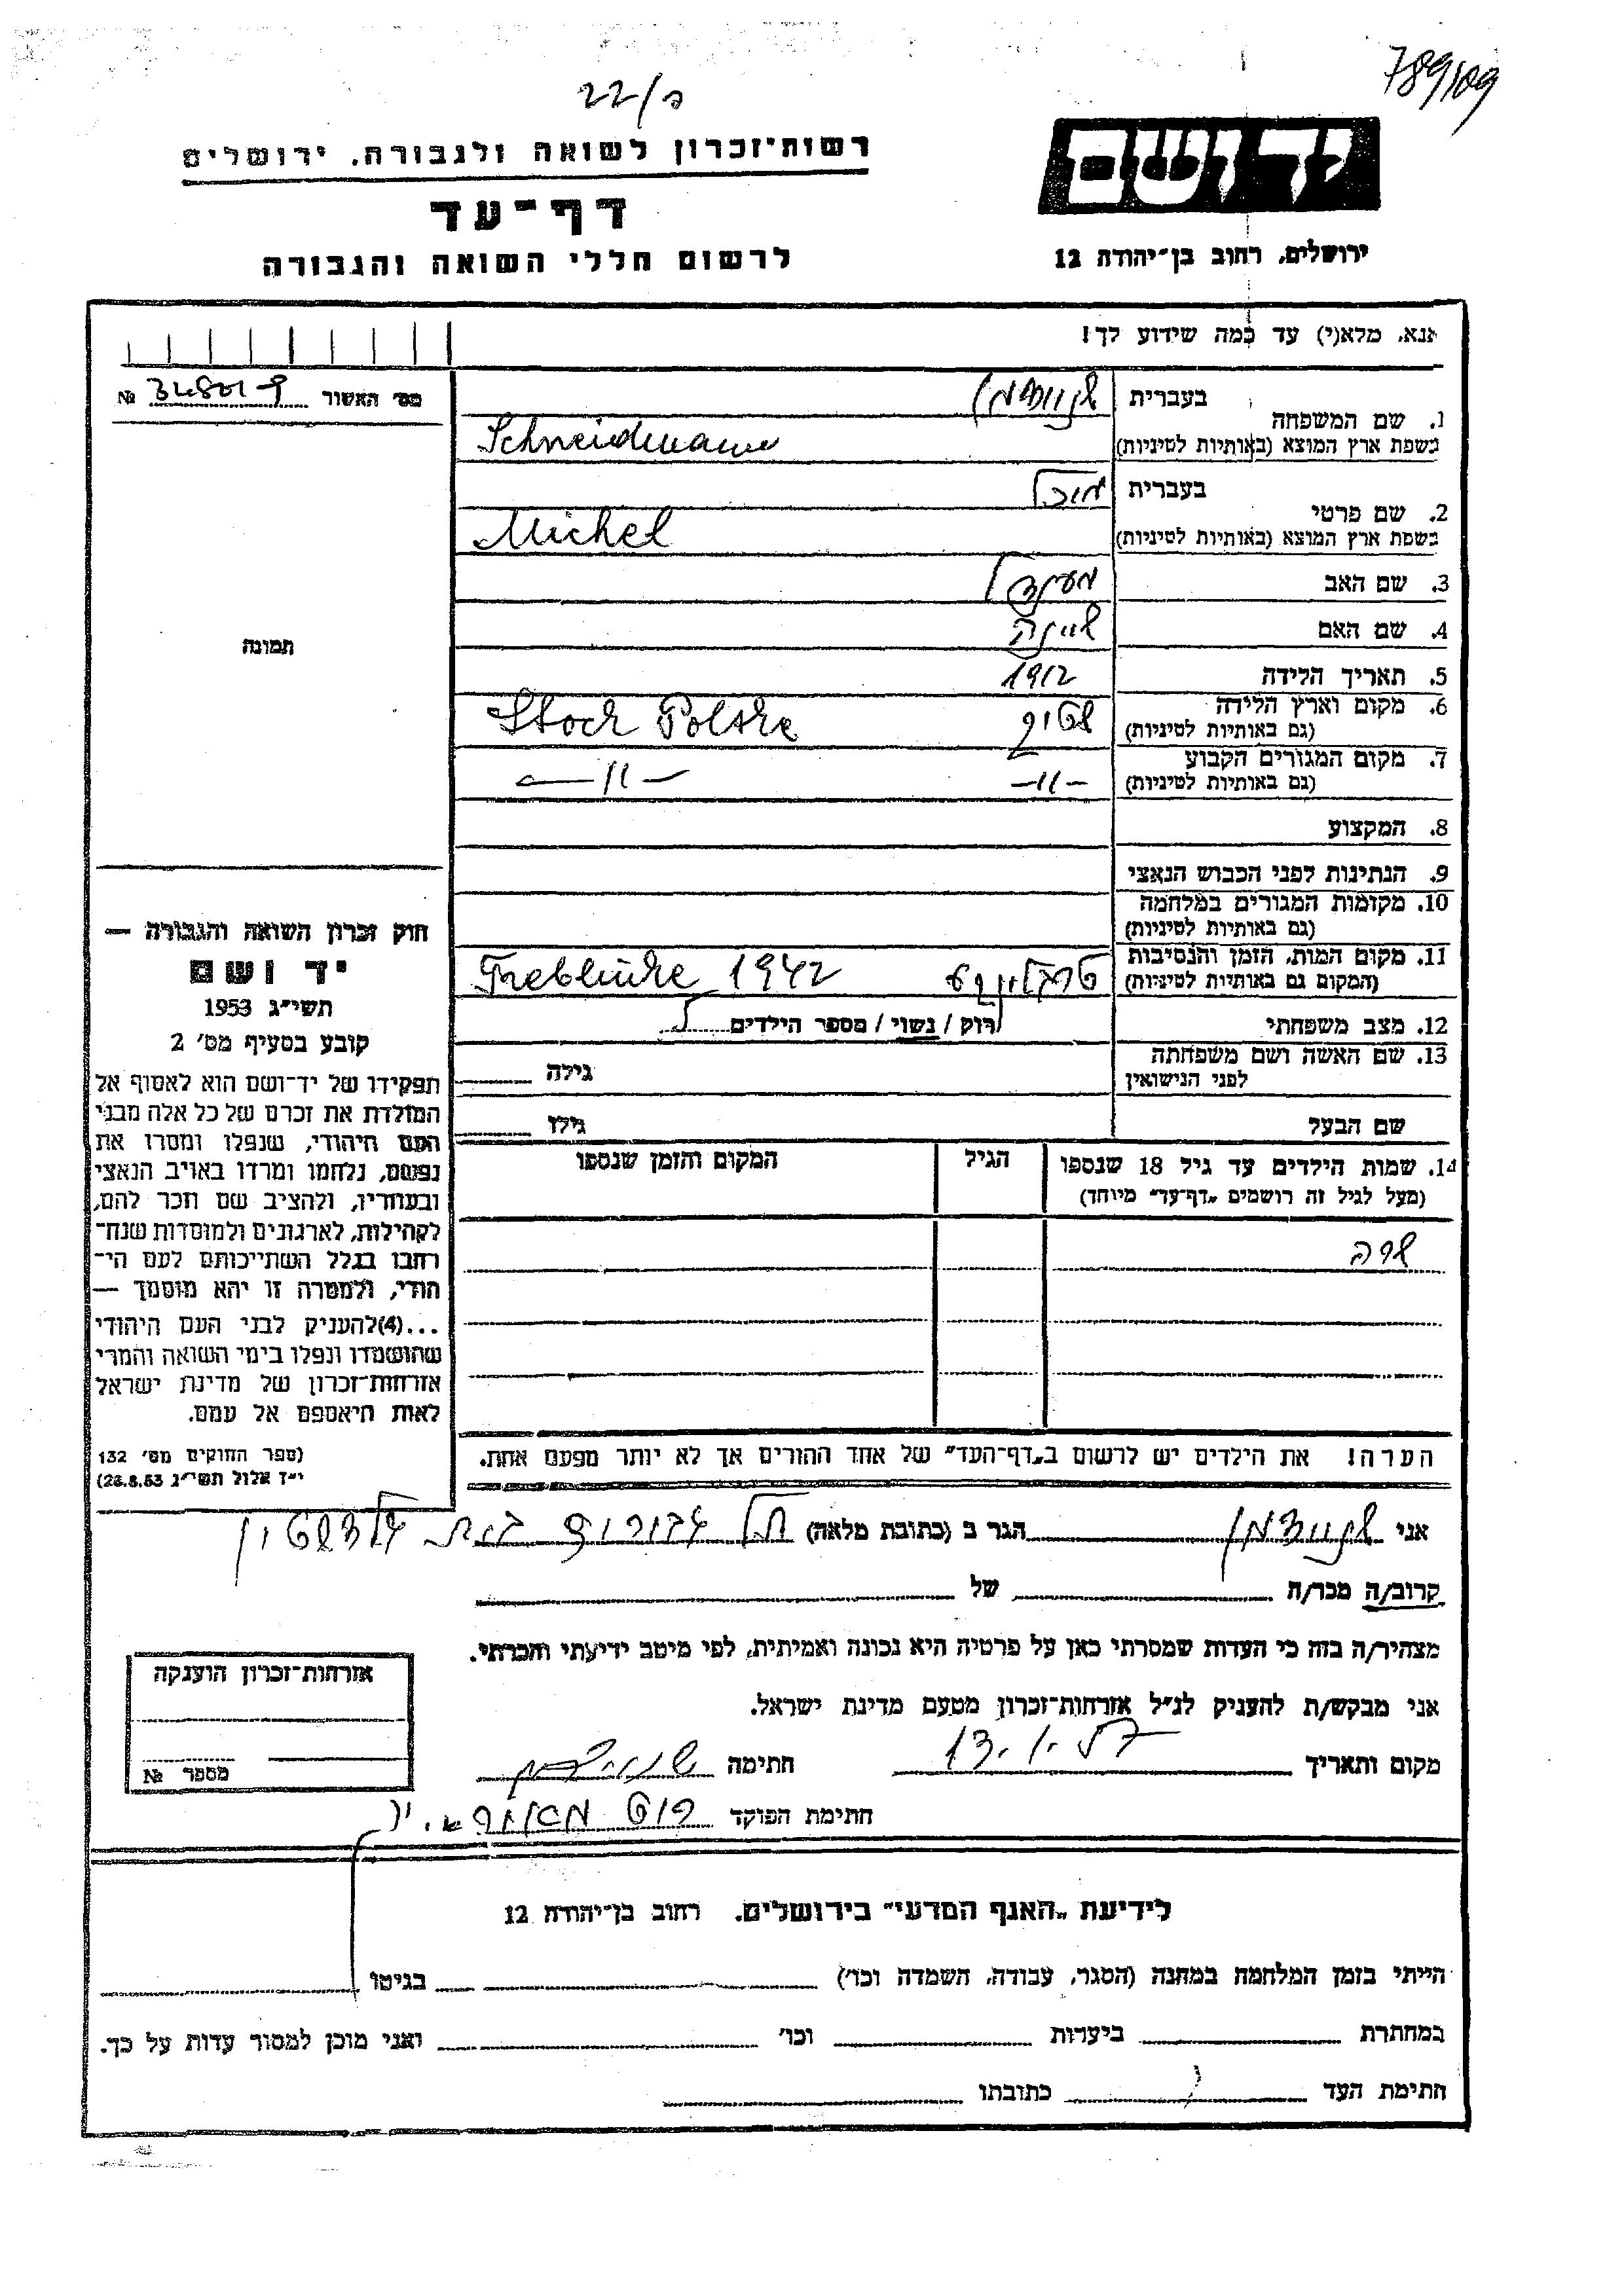 789/09
22/כ
רשות־זכרון לשואה ולגבורה, ירושלים
יד ושם
דף־עד
לרשום חללי השואה והגבורה
ירושלים, רחוב בן־יהודה 12
אנא, מלא(י) עד כמה שידוע לך!
מס׳ האשור №
1. שם המשפחה
בעברית
בשפת ארץ המוצא (באותיות לטיניות) Schneidmann
2. שם פרטי
בעברית מיכל
בשפת ארץ המוצא (באותיות לטיניות) Michel
3. שם האב מענדל
4. שם האם שיינה
5. תאריך הלידה 1912
6. מקום וארץ הלידה
(גם באותיות לטיניות) Stock Polske
7. מקום המגורים הקבוע
(גם באותיות לטיניות) -״- -״-
8. המקצוע
9. הנתינות לפני הכבוש הנאצי
10. מקומות המגורים במלחמה
(גם באותיות לטיניות)
11. מקום המות, הזמן והנסיבות
(המקום גם באותיות לטיניות) Treblinke 1942
12. מצב משפחתי רוק / נשוי / מספר הילדים
13. שם האשה ושם משפחתה
לפני הנישואין גילה
שם הבעל גילו
14. שמות הילדים עד גיל 18 שנספו
(מעל לגיל זה רושמים „דף־עד״ מיוחד)
הגיל
המקום והזמן שנספו
שרה
תמונה
חוק זכרון השואה והגבורה —
יד ושם
תשי״ג 1953
קובע בסעיף מס׳ 2
תפקידו של יד־ושם הוא לאסוף אל
המולדת את זכרם של כל אלה מבני
העם היהודי, שנפלו ומסרו את
נפשם, נלחמו ומרדו באויב הנאצי
ובעוזריו, ולהציב שם וזכר להם,
לקהילות, לארגונים ולמוסדות שנח־
רבו בגלל השתייכותם לעם הי־
הודי, ולמטרה זו יהא מוסמך —
...(4)להעניק לבני העם היהודי
שהושמדו ונפלו בימי השואה והמרי
אזרחות־זכרון של מדינת ישראל
לאות היאספם אל עמם.
(ספר החוקים מס׳ 132
י״ז אלול תשי״ג 28.8.53)
הערה! את הילדים יש לרשום ב„דף־העד״ של אחד ההורים אך לא יותר מפעם אחת.
אני שניידמן הגר ב (כתובת מלאה)
קרוב/ה מכר/ה של
מצהיר/ה בזה כי העדות שמסרתי כאן על פרטיה היא נכונה ואמיתית, לפי מיטב ידיעתי והכרתי.
אני מבקש/ת להעניק לנ״ל אזרחות־זכרון מטעם מדינת ישראל.
מקום ותאריך חתימה
חתימת הפוקד
אזרחות־זכרון הוענקה
מספר №
לידיעת „האגף המדעי״ בירושלים, רחוב בן־יהודה 12
הייתי בזמן המלחמה במחנה (הסגר, עבודה, השמדה וכו׳) בגיטו
במחתרת ביערות וכו׳ ואני מוכן למסור עדות על כך.
חתימת העד כתובתו